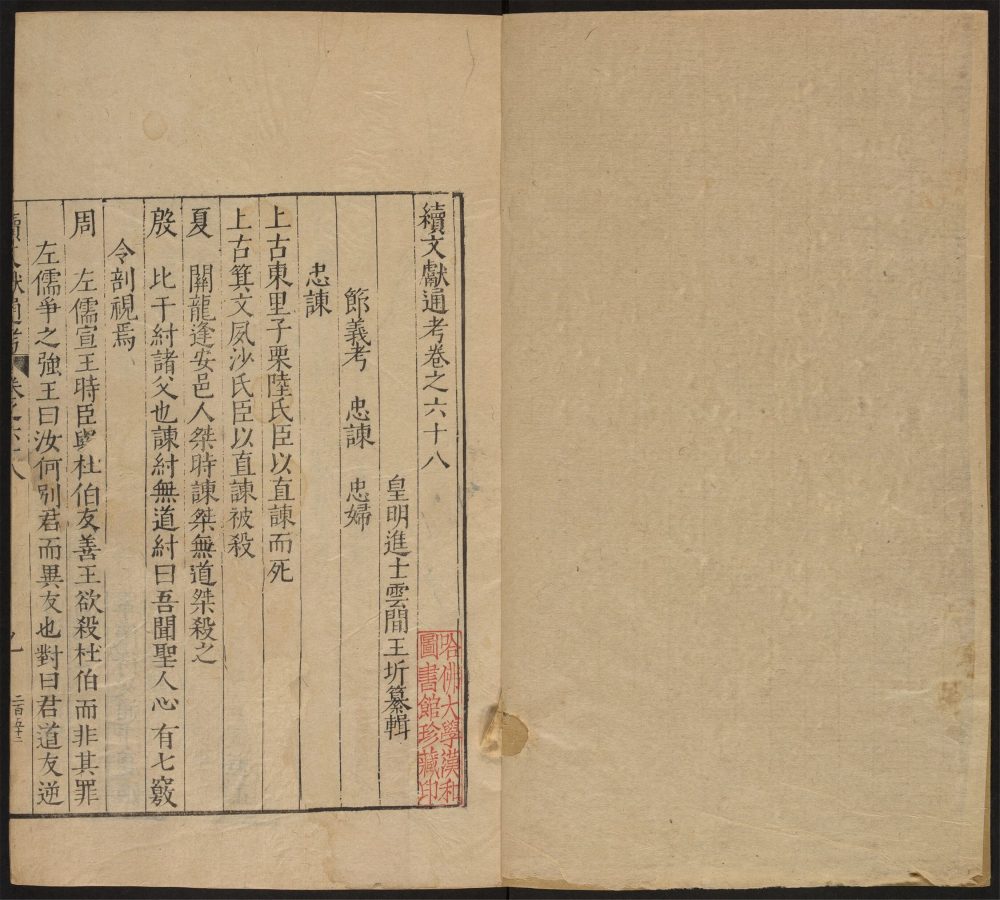 續文獻通考卷之六十八
哈佛大學漢和
圖書館珍藏印
皇明進士雲間王圻纂輯
節義考 忠諫 忠婦
忠諫
上古東里子栗陸氏臣以直諫而死
上古箕文夙沙氏臣以直諫被殺
夏 關龍逢安邑人桀時諫桀無道桀殺之
殷 比干紂諸父也諫紂無道紂曰吾聞聖人心有七竅
令剖視焉
周 左儒宣王時臣與杜伯友善王欲殺杜伯而非其罪
左儒爭之強王曰汝何別君而異友也對曰君道友逆
續文獻通考 卷之六十八